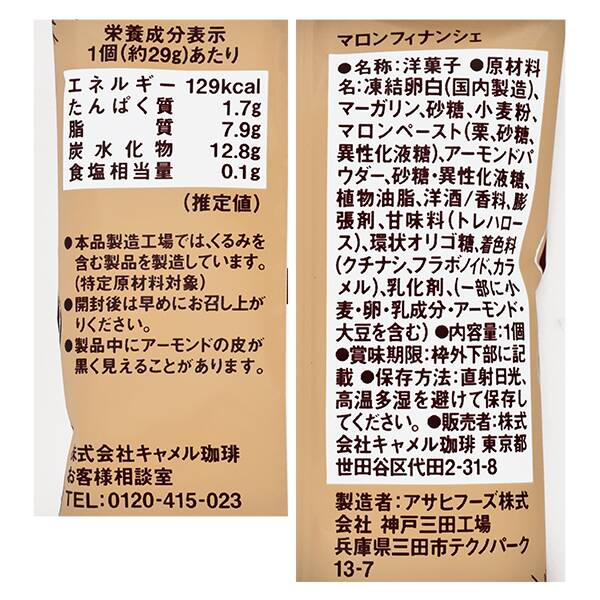 栄養成分表示
1個(約29g)あたり
エネルギー 129kcal
たんぱく質 1.7g
脂質 7.9g
炭水化物 12.8g
食塩相当量 0.1g
(推定値)
●本品製造工場では、くるみを
含む製品を製造しています。
(特定原材料対象)
●開封後は早めにお召し上が
りください。
●製品中にアーモンドの皮が
黒く見えることがあります。
株式会社キャメル珈琲
お客様相談室
TEL:0120-415-023
マロンフィナンシェ
●名称:洋菓子 ●原材料
名:凍結卵白(国内製造)、
マーガリン、砂糖、小麦粉、
マロンペースト(栗、砂糖、
異性化液糖)、アーモンドパ
ウダー、砂糖・異性化液糖、
植物油脂、洋酒/香料、膨
張剤、甘味料(トレハロー
ス)、環状オリゴ糖、着色料
(クチナシ、フラボノイド、カラ
メル)、乳化剤、(一部に小
麦・卵・乳成分・アーモンド・
大豆を含む) ●内容量:1個
●賞味期限:枠外下部に記
載 ●保存方法:直射日光、
高温多湿を避けて保存し
てください。●販売者:株式
会社キャメル珈琲 東京都
世田谷区代田2-31-8
製造者:アサヒフーズ株式
会社 神戸三田工場
兵庫県三田市テクノパーク
13-7